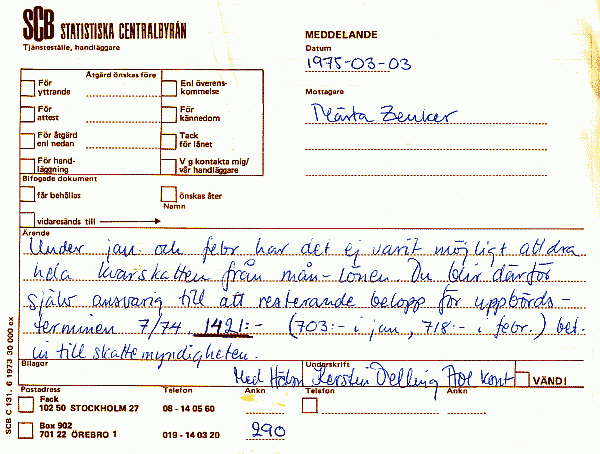 SCB STATISTISKA CENTRALBYRÅN
Tjänsteställe, handläggare
MEDDELANDE
Datum
1975-03-03
Mottagare
Märta Zenker
Åtgärd önskas före
För yttrande
Enl överenskommelse
För attest
För kännedom
För åtgärd enl nedan
Tack för lånet
För handläggning
V g kontakta mig/vår handläggare
Bifogade dokument
får behållas
önskas åter
Namn
vidaresänds till
Ärende
Under jan. och febr har det ej varit möjligt att dra
hela kvarskatten från mån-lönen. Du blir därför
själv ansvarig till att resterande belopp för uppbörds-
terminen 7/74 1421:- (703:- i jan, 718:- i febr.) bet.
in till skattemyndigheten.
Bilagor
Underskrift
Med Hälsn Kerstin kont
VÄND!
Postadress
Telefon
Ankn
Telefon
Ankn
Fack
102 50 STOCKHOLM 27
08 - 14 05 60
Box 902
701 22 ÖREBRO 1
019 - 14 03 20
290
SCB C 131. 6 1973 30 000 ex